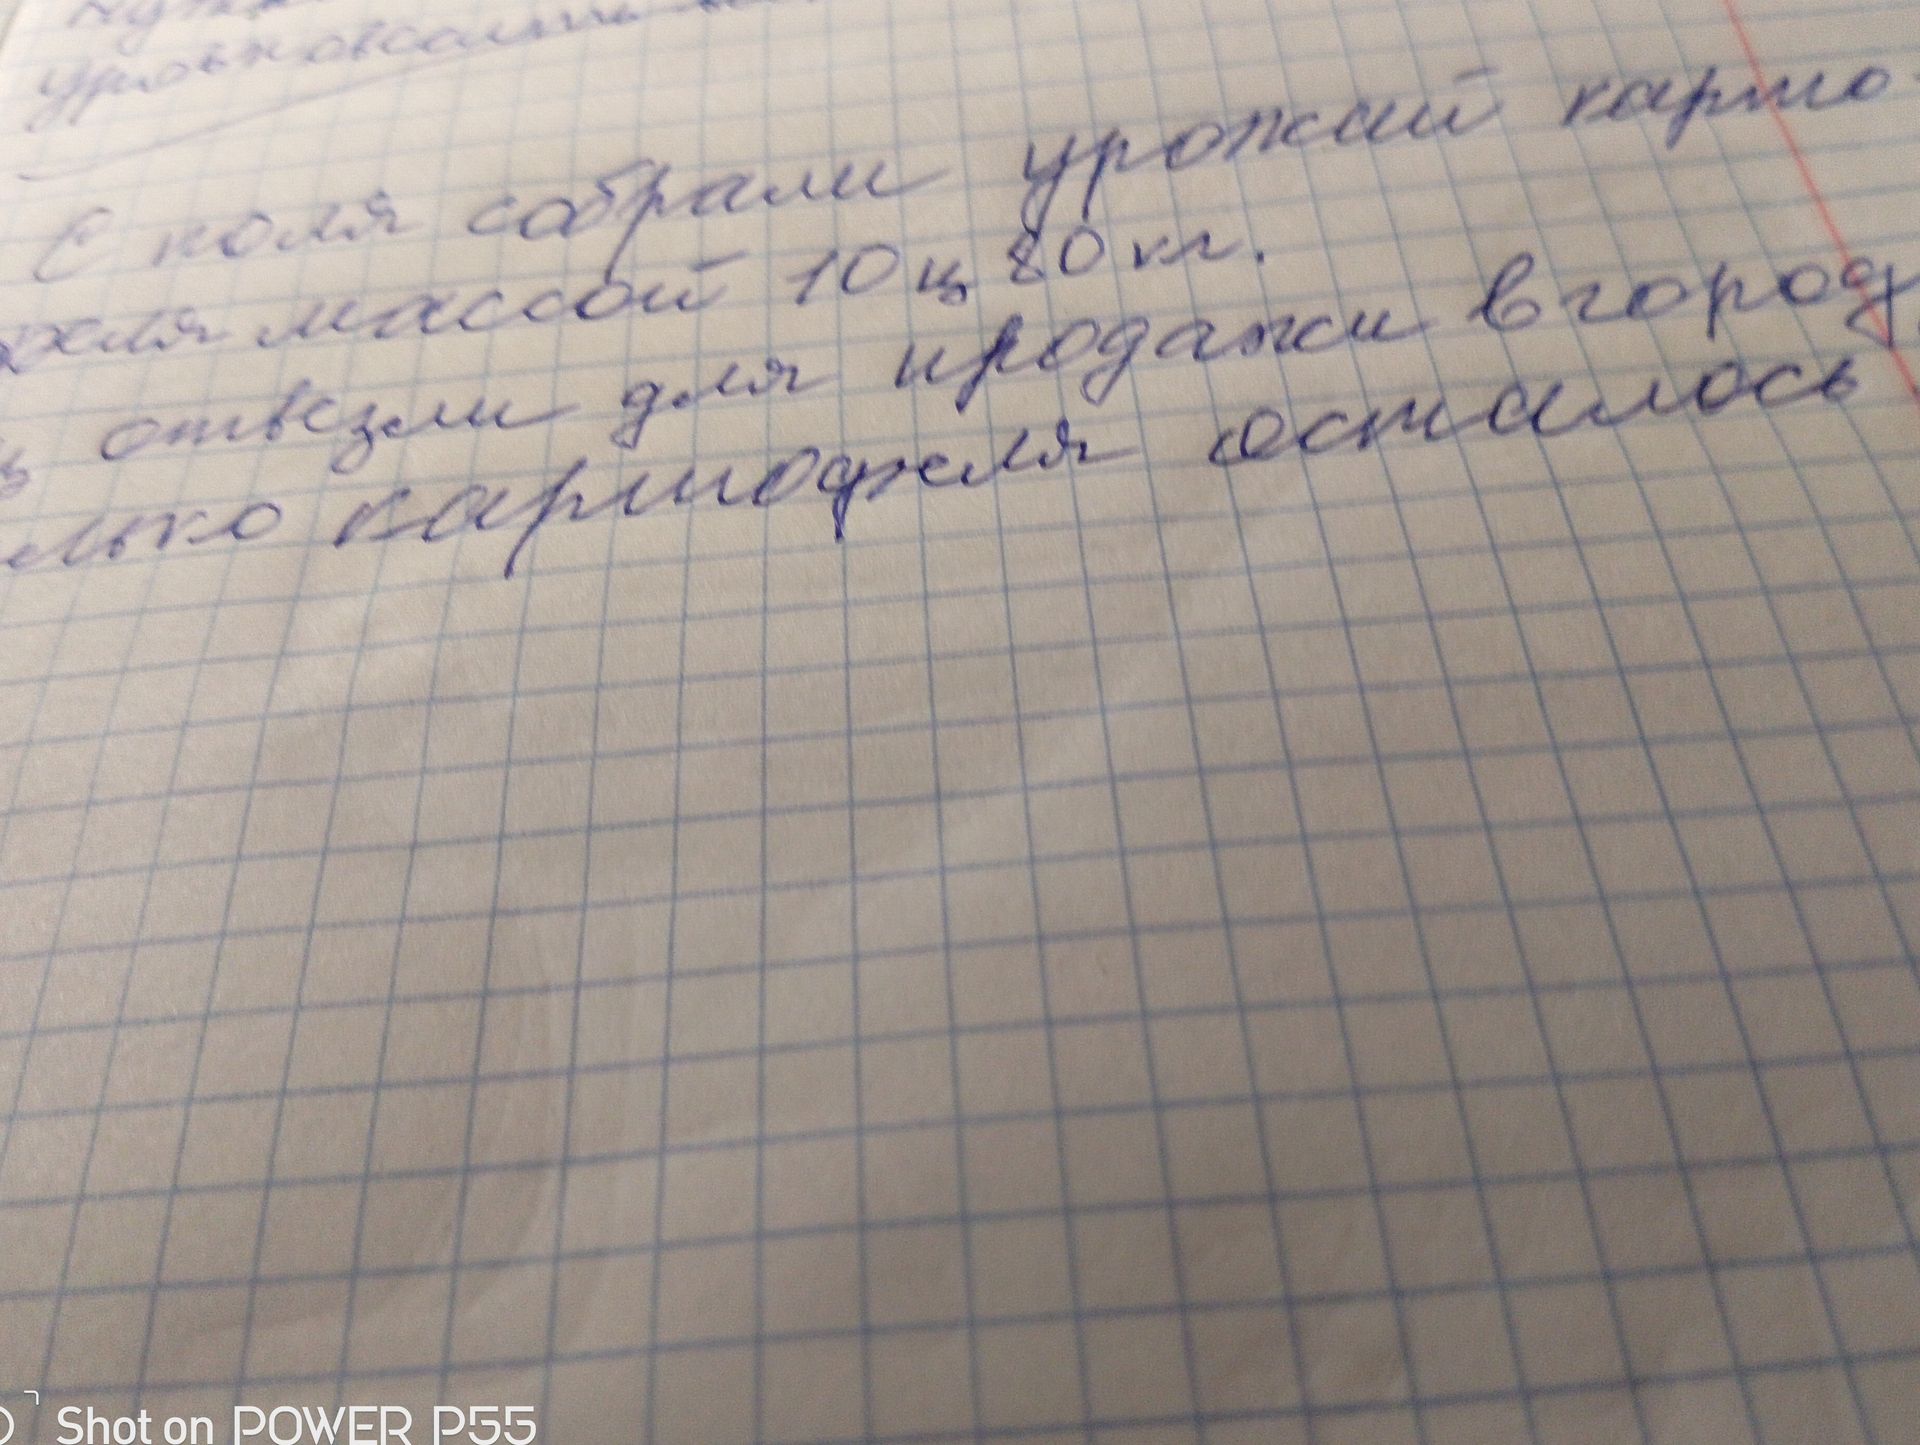 С поля собрали урожай карто-
феля массой 10 ц 80 кг.
ц отвезли для продажи в город
олько картофеля осталось
Shot on POWER P55